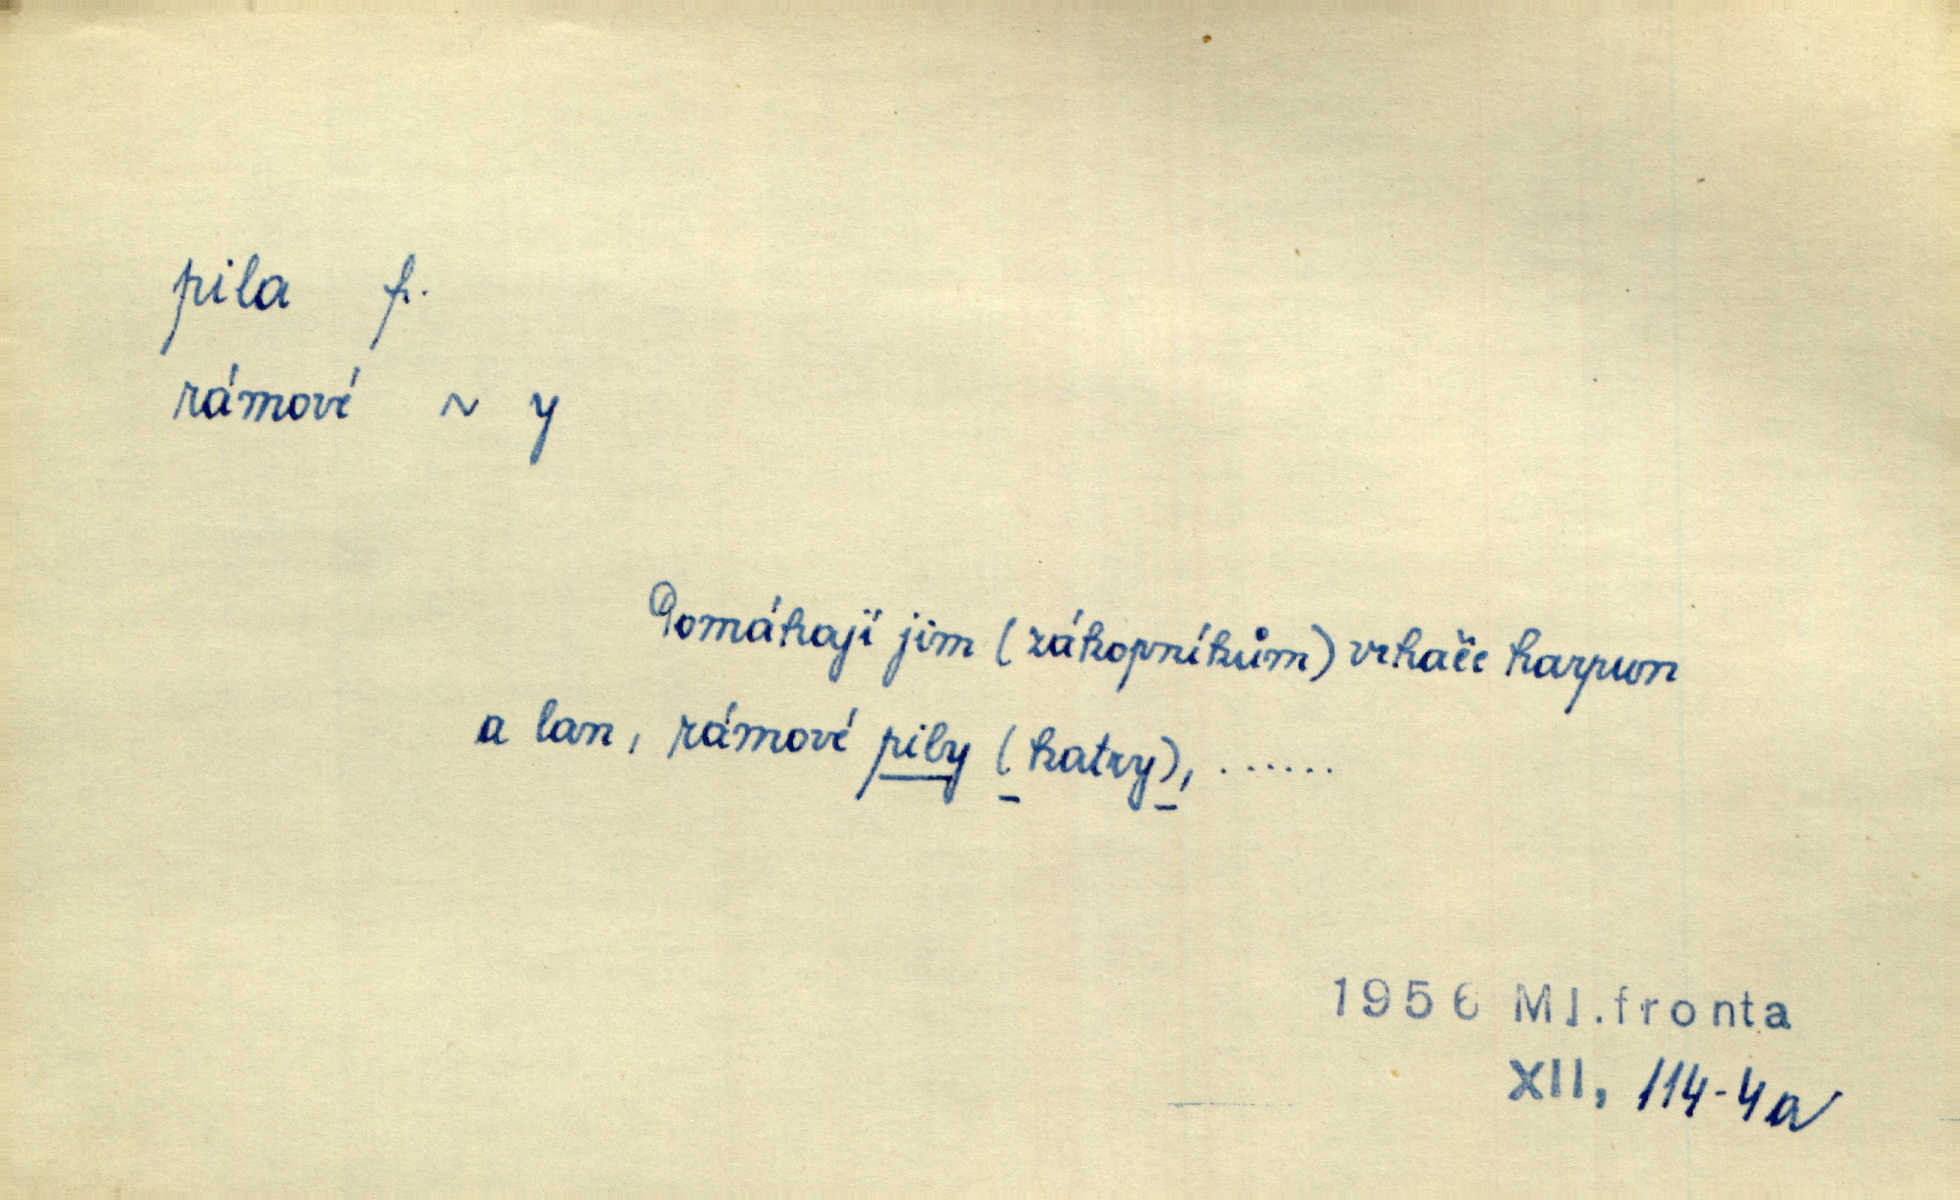 pila f.
rámové ~ y
Pomáhají jim (zákopníkům) vrhače harpun
a lan, rámové pily (katry), ......
1956 Ml.fronta
XII, 114-4a